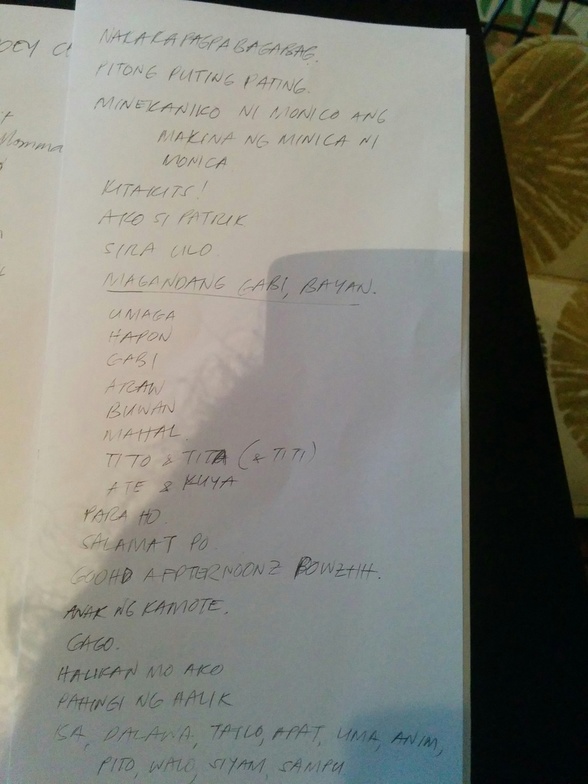 NAKAKAPAGPABAGABAG.
PITONG PUTING PATING.
MINEKANIKO NI MONICO ANG
MAKINA NG MINICA NI
MONICA
KITAKITS!
AKO SI PATRIK
SIRA ULO
MAGANDANG GABI, BAYAN.
UMAGA
HAPON
GABI
ARAW
BUWAN
MAHAL
TITO & TITA (& TITI)
ATE & KUYA
PARA HO
SALAMAT PO
GOOHD AFPTERNOONZ POWZHH.
ANAK NG KAMOTE.
GAGO.
HALIKAN MO AKO
PAHINGI NG HALIK
ISA, DALAWA, TATLO, APAT, LIMA, ANIM,
PITO, WALO, SIYAM, SAMPU